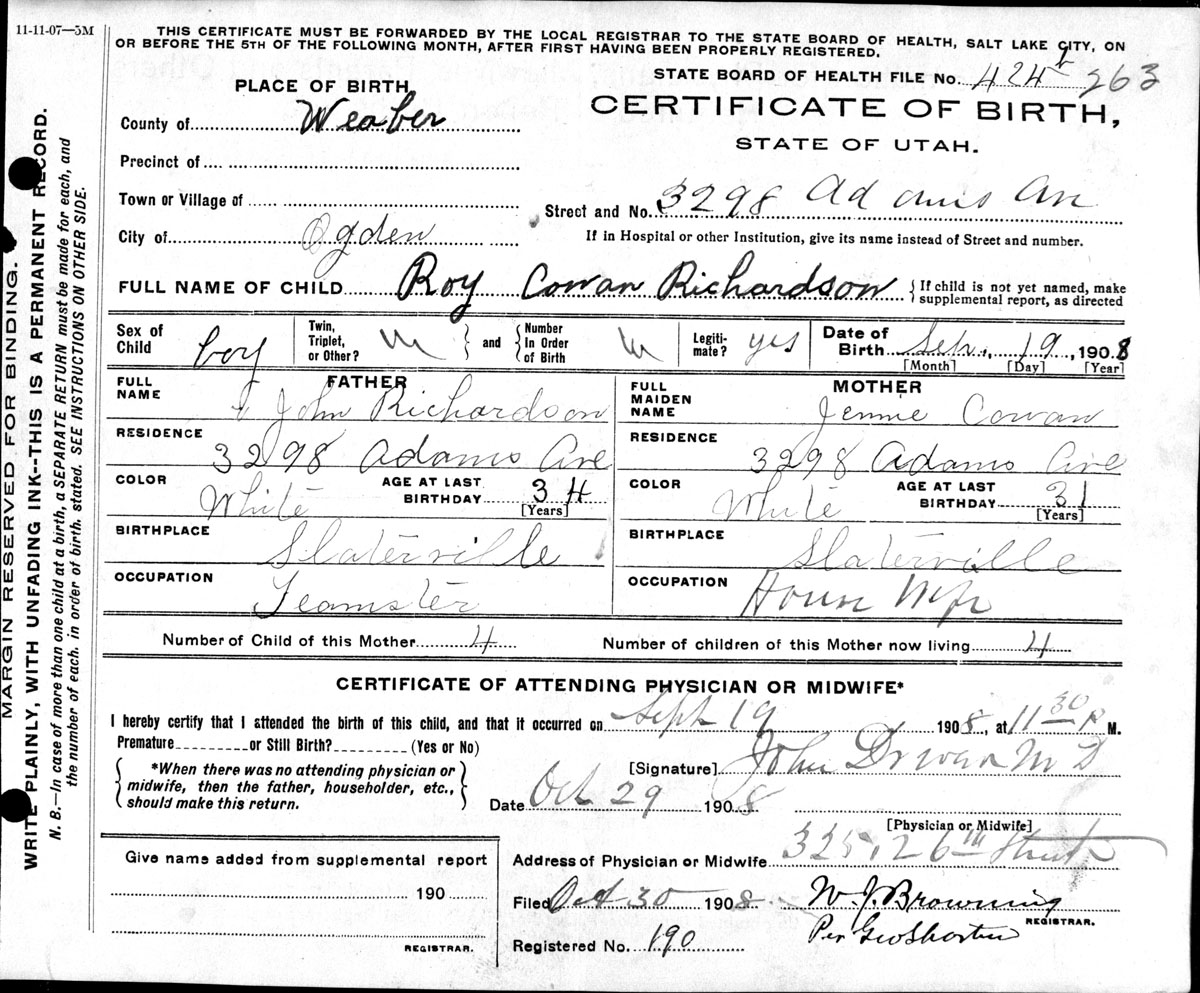 11-11-07—5M
THIS CERTIFICATE MUST BE FORWARDED BY THE LOCAL REGISTRAR TO THE STATE BOARD OF HEALTH, SALT LAKE CITY, ON
OR BEFORE THE 5TH OF THE FOLLOWING MONTH, AFTER FIRST HAVING BEEN PROPERLY REGISTERED.
STATE BOARD OF HEALTH FILE No. 424 263
PLACE OF BIRTH
CERTIFICATE OF BIRTH,
STATE OF UTAH.
County of Weaber
Precinct of
Town or Village of
Street and No. 3298 Adams Av
City of Ogden
If in Hospital or other Institution, give its name instead of Street and number.
FULL NAME OF CHILD Roy Cowan Richardson { If child is not yet named, make
supplemental report, as directed
Sex of Child boy Twin, Triplet, or Other? } and { Number In Order of Birth Legiti-mate? yes Date of Birth Sep. 19, 1908
[Month] [Day] [Year]
FATHER
FULL NAME John Richardson
MOTHER
FULL MAIDEN NAME Jennie Cowan
RESIDENCE 3298 Adams Ave
RESIDENCE 3298 Adams Ave
COLOR White AGE AT LAST BIRTHDAY 34 [Years]
COLOR White AGE AT LAST BIRTHDAY 31 [Years]
BIRTHPLACE Slaterville
BIRTHPLACE Slaterville
OCCUPATION Teamster
OCCUPATION House Wife
Number of Child of this Mother 4 Number of children of this Mother now living 4
CERTIFICATE OF ATTENDING PHYSICIAN OR MIDWIFE*
I hereby certify that I attended the birth of this child, and that it occurred on Sept 19 1908, at 11 30 P M.
Premature or Still Birth? (Yes or No)
{ *When there was no attending physician or
midwife, then the father, householder, etc.,
should make this return. }
[Signature] John M D
Date Oct 29 1908
[Physician or Midwife]
Address of Physician or Midwife 325, 26th Street
Give name added from supplemental report
190
REGISTRAR.
Filed Oct 30 1908 W. J. Browning
REGISTRAR.
Per Geo Shorten
Registered No. 190
MARGIN RESERVED FOR BINDING.
WRITE PLAINLY, WITH UNFADING INK--THIS IS A PERMANENT RECORD.
N. B.—In case of more than one child at a birth, a SEPARATE RETURN must be made for each, and
the number of each, in order of birth, stated. SEE INSTRUCTIONS ON OTHER SIDE.